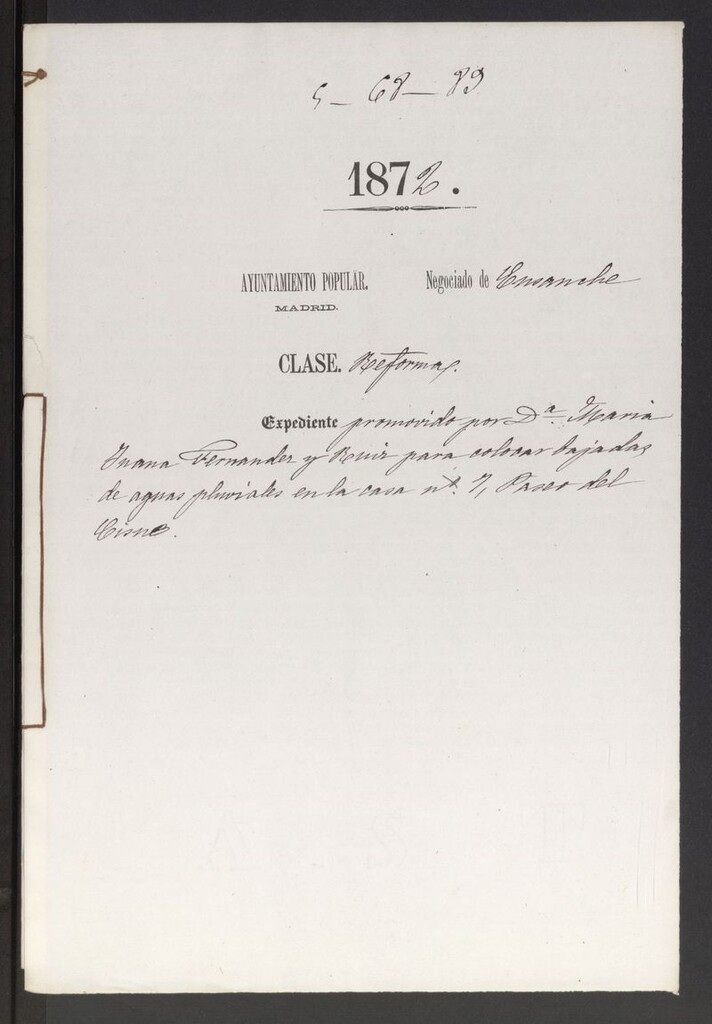 5 - 68 - 89
1872.
AYUNTAMIENTO POPULAR. Negociado de Ensanche
MADRID.
CLASE. Reformas.
Expediente promovido por Dª. Maria
Juana Fernandez y Ruiz para colocar bajadas
de aguas pluviales en la casa nº. 7, Paseo del
Cisne.